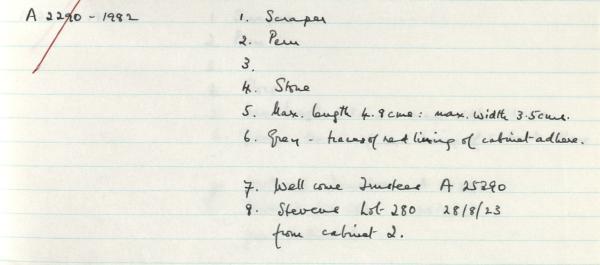 A 2290-1982
1. Scraper
2. Peru
3.
4. Stone
5. Max. length 4.9cms: max. width 3.5cms.
6. Grey - traces of red lining of cabinet adhere.
7. Wellcome Trustees A 25290
8. Stevens Lot 280 28/8/23
from cabinet 2.